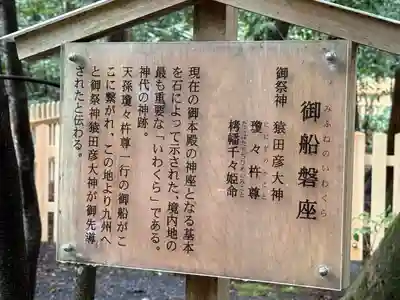 御船磐座
みふねのいわくら
御祭神 猿田彦大神
瓊々杵尊
栲幡千々姫命
現在の御本殿の神座となる基本
を石によって示された、境内地の
最も重要な「いわくら」である。
神代の神跡。
天孫瓊々杵尊一行の御船がこ
こに繋がれ、この地より九州へ
と御祭神猿田彦大神が御先導
されたと伝わる。